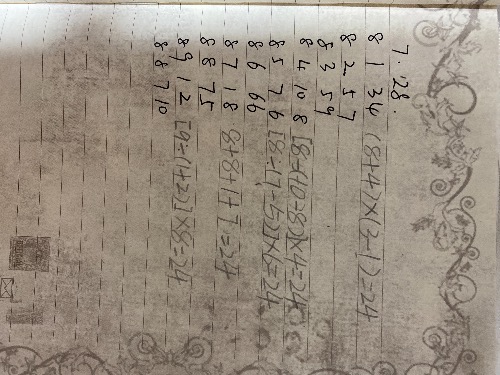 7.28.
8 1 3 4 (8+4)×(3-1)=24
8 2 5 7
8 3 5 9
8 4 10 8 [8-(10-8)]×4=24
8 5 7 6 [8÷(7-5)]×6=24
8 6 6 6
8 7 1 8 8+8+1+7=24
8 8 7 5
8 9 1 2 [9÷(1+2)]×8=24
8 8 7 10